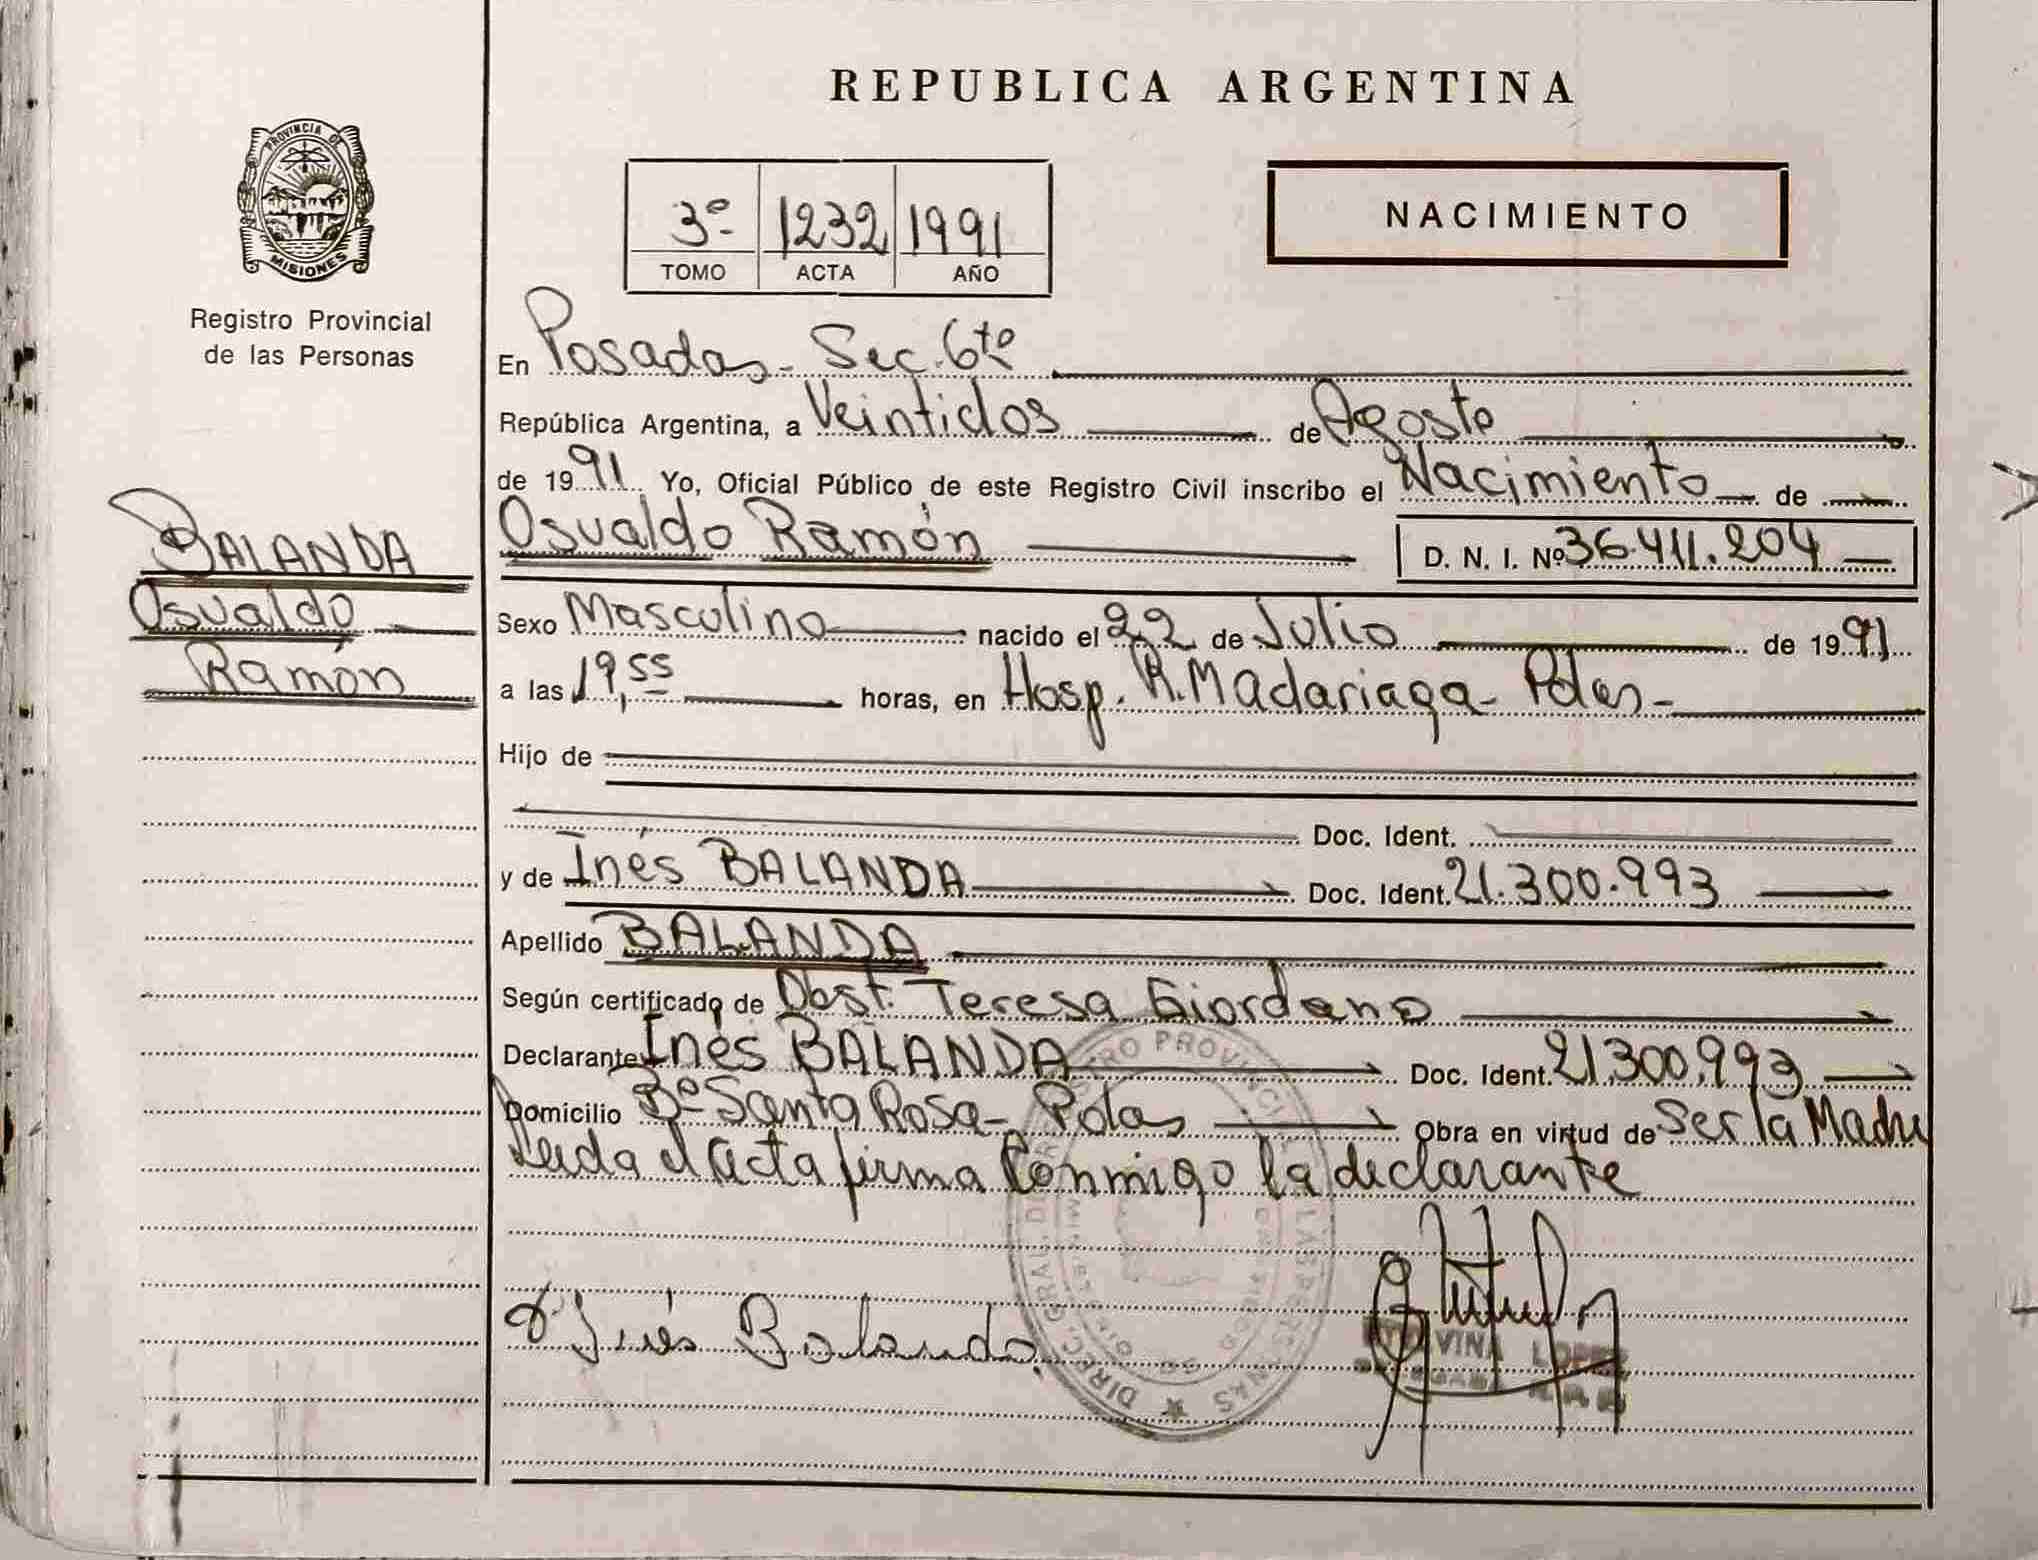 REPUBLICA ARGENTINA
PROVINCIA DE
MISIONES
Registro Provincial
de las Personas
3º 1232 1991
TOMO ACTA AÑO
NACIMIENTO
BALANDA
Osvaldo
Ramón
En Posadas - Sec. 6ta
República Argentina, a Veintidos de Agosto
de 1991 Yo, Oficial Público de este Registro Civil inscribo el Nacimiento de
Osvaldo Ramón D. N. I. Nº 36.411.204
Sexo Masculino nacido el 22 de Julio de 1991
a las 19,55 horas, en Hosp. R. Madariaga - Pdas -
Hijo de
Doc. Ident.
y de Inés BALANDA Doc. Ident. 21.300.993
Apellido BALANDA
Según certificado de Obst. Teresa Giordano
Declarante Inés BALANDA Doc. Ident. 21.300.993
Domicilio Bº Santa Rosa - Pdas Obra en virtud de Ser la Madre
Leida el Acta firma Conmigo la declarante
Inés Balanda
LOPEZ